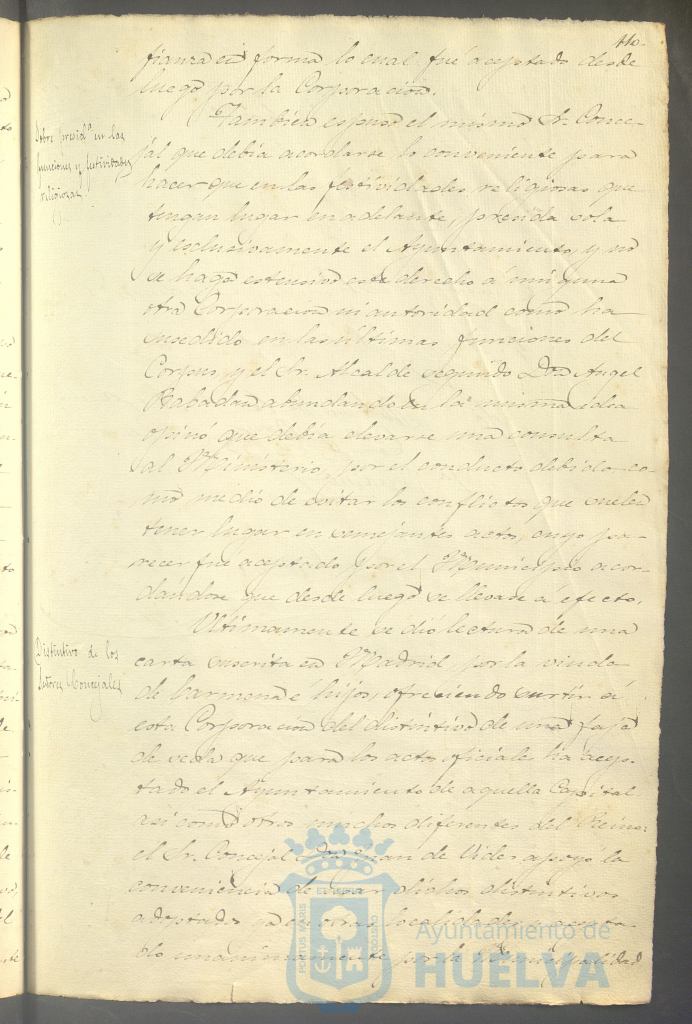 110.
fianza en forma lo cual fué aceptado desde
luego por la Corporacion.
Sobre presid.ª en las
funciones y festividades
religiosas
Tambien espuso el mismo Sr. Conce-
jal que debia acordarse lo conveniente para
hacer que en las festividades religiosas que
tengan lugar en adelante, presida sola
y esclusivamente el Ayuntamiento, y no
se haga estensivo este derecho á ninguna
otra Corporacion ni autoridad como ha
sucedido en las últimas funciones del
Corpus, y el Sr. Alcalde segundo Don Angel
Rabadan abundando en la misma idea
opinó que debia elevarse una consulta
al Ministerio, por el conducto debido, co-
mo medio de evitar los conflictos que suelen
tener lugar en semejantes actos, cuyo pa-
recer fué aceptado por el Municipio acor-
dándose que desde luego se llevase á efecto.
Distintivo de los
Señores Concejales
Ultimamente se dió lectura de una
carta suscrita en Madrid, por la viuda
de Carmena é hijos, ofreciendo surtir á
esta Corporacion del distintivo de una faja
de seda que para los actos oficiales ha acep-
tado el Ayuntamiento de aquella Capital
asi como otros muchos diferentes del Reino:
el Sr. Concejal Don Juan de Vides apoyó la
conveniencia de usar dichos distintivos
adoptados ya en otras localidades y acepta-
do unanimamente por la Municipalidad
PORTUS MARIS
ET TERRÆ
CUSTODIA
Ayuntamiento de
HUELVA